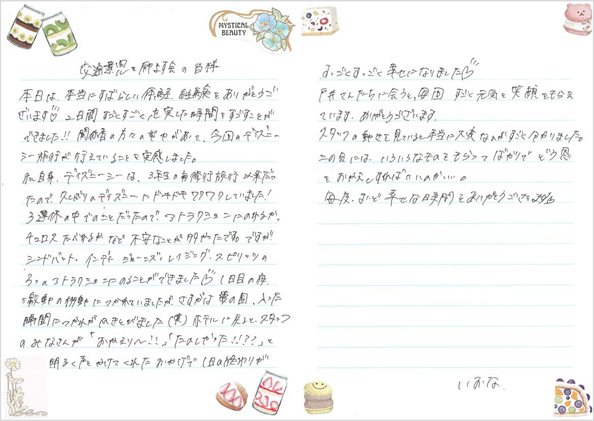 交通遺児を励ます会の皆様
本日は、本当にすばらしい体験、経験をありがとうご
ざいます 2日間すごくすごく充実した時間をすごすことが
できました!! 関係者の方々の努力があって、今回のディズニ
ー旅行が行えていることを実感しました。
私自身、ディズニーは、3年生の修学旅行以来だっ
たので、久しぶりのディズニーにドキドキワクワクしていました!
3連休の中でのことだったので、アトラクションにのれるか、
チュロスたべれるか など 不安なことが多かったですが
シンドバット・インディジョーンズ・レイジングスピリッツの
3つのアトラクションにのることができました 1日目の夜、
移動につかれていましたが、さすが夢の国、入った
瞬間につかれがふきとびました(笑) ホテルに戻ると、スタッフ
のみなさんが「おかえり〜!!」「たのしかった!!??」と
明るく声をかけてくれたおかげで1日の終わりが
すごくすごく幸せになりました
さんたちに会うと、毎回 すごく元気と笑顔をもらえ
ています。ありがとうございます。
スタッフの動きを見ていると本当に大変なのがすごく分かりました。
この会には、いろいろなものをもらってばかりで どう恩
をお返しすればいいのか...
毎度、すごく幸せな時間をありがとうございます
いおな
MYSTICAL
BEAUTY